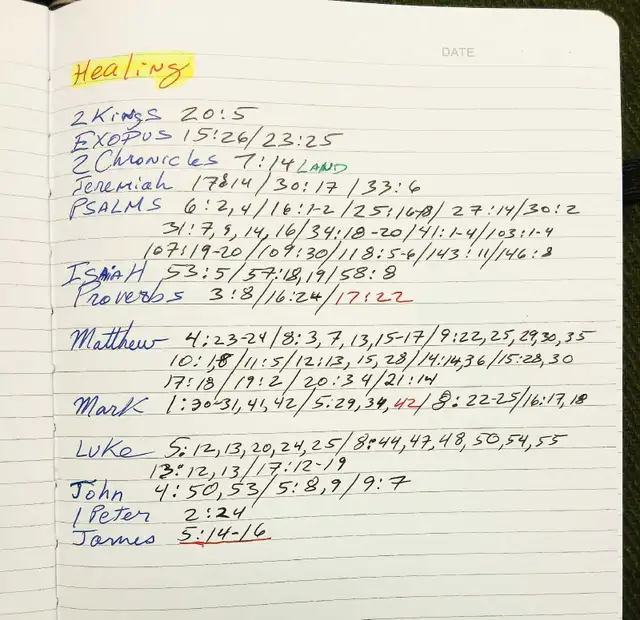 DATE
Healing
2 Kings 20:5
EXODUS 15:26/23:25
2 Chronicles 7:14 LAND
Jeremiah 17:14/30:17/33:6
PSALMS 6:2,4/16:1-2/25:16-18/27:14/30:2
31:7,9,14,16/34:18-20/41:1-4/103:1-4
107:19-20/109:30/118:5-6/143:11/146:8
ISAIAH 53:5/57:18,19/58:8
Proverbs 3:8/16:24/17:22
Matthew 4:23-24/8:3,7,13,15-17/9:22,25,29,30,35
10:1,8/11:5/12:13,15,28/14:14,36/15:28,30
17:18/19:2/20:34/21:14
Mark 1:30-31,41,42/5:29,34,42/8:22-25/16:17,18
Luke 5:12,13,20,24,25/8:44,47,48,50,54,55
13:12,13/17:12-19
John 4:50,53/5:8,9/9:7
1 Peter 2:24
James 5:14-16